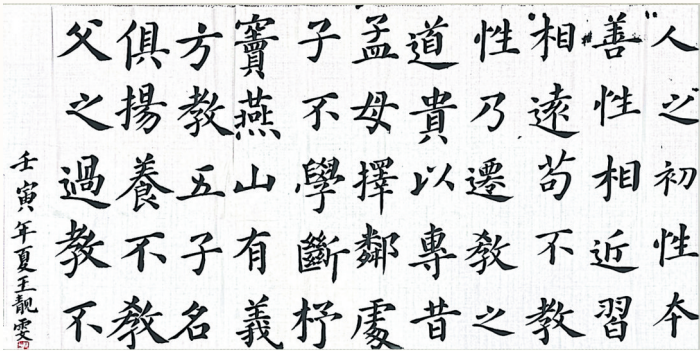 人之初性本
善性相近習
相遠苟不教
性乃遷教之
道貴以專昔
孟母擇鄰處
子不學斷杼
竇燕山有義
方教五子名
俱揚養不教
父之過教不
壬寅年夏王靚雯